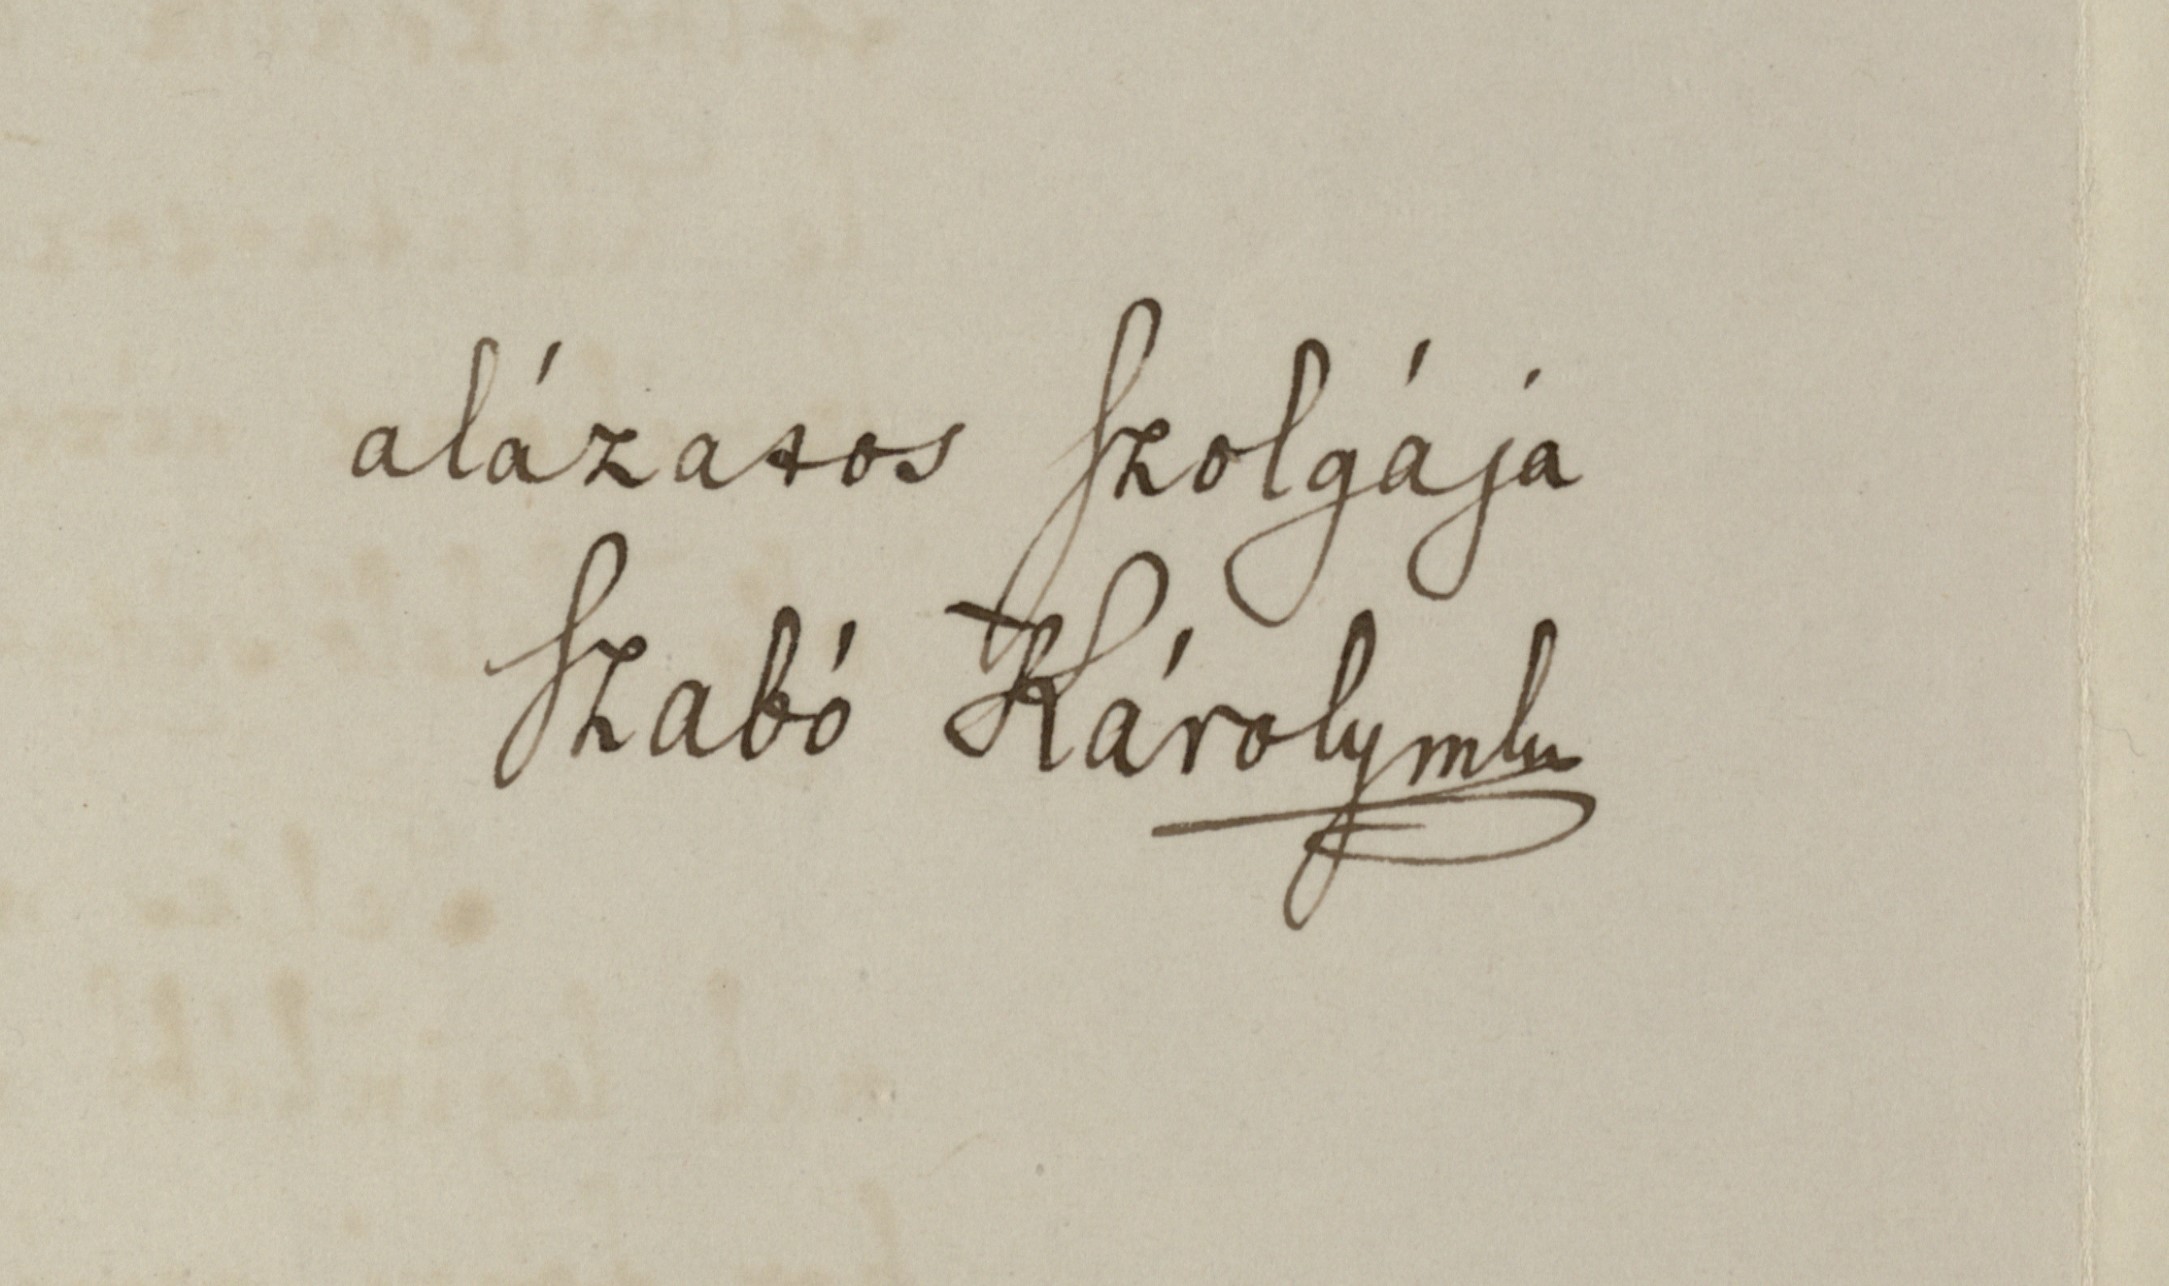 alázatos szolgája
Szabó Károly mk